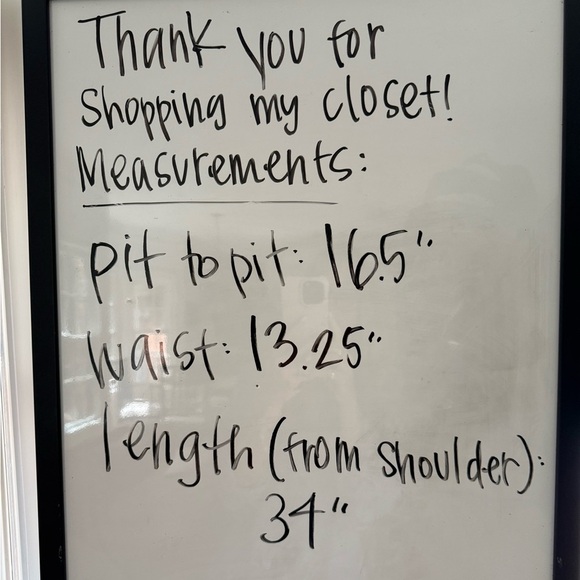 Thank you for
Shopping my closet!
Measurements:
pit to pit: 16.5"
waist: 13.25"
length (from shoulder):
34"